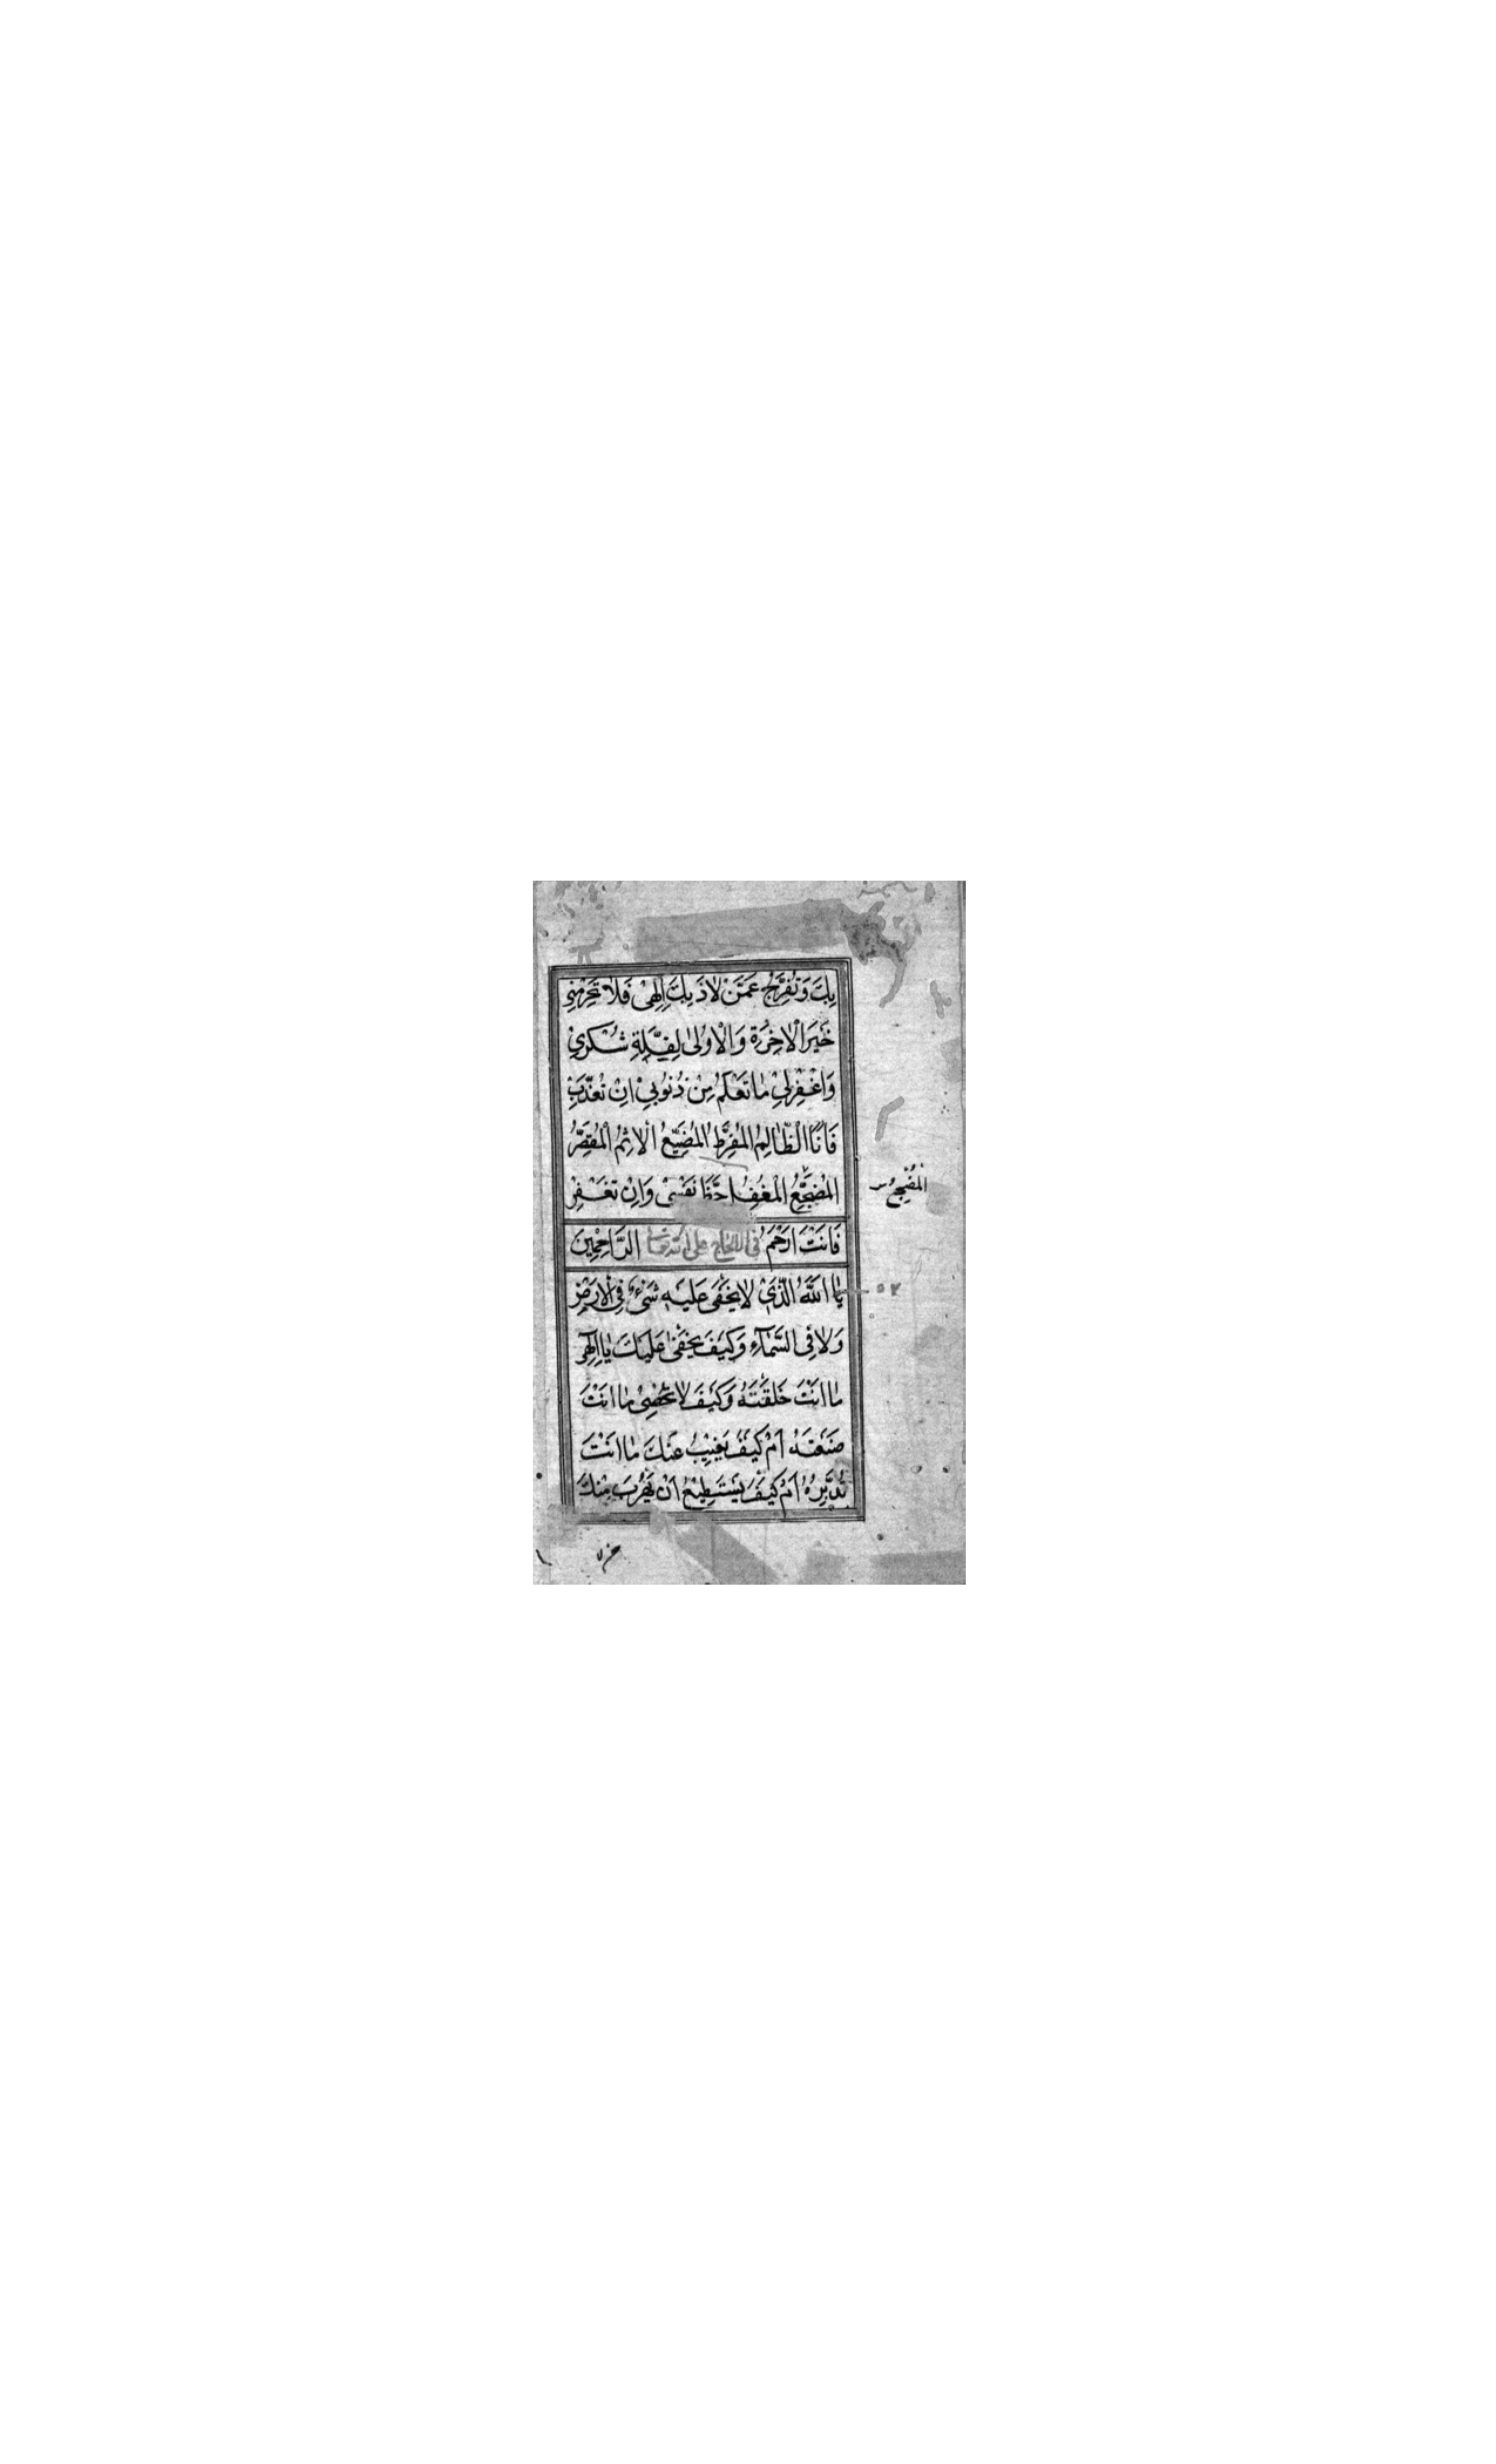 بِكَ وَتُفَرِّجُ عَمَّنْ لَاذَ بِكَ اِلٰهِىْ فَلَا تَحْرِمْنِىْ
خَيْرَ الْاٰخِرَةِ وَالْاُوْلٰى لِقِلَّةِ شُكْرِىْ
وَاغْفِرْلِىْ مَا تَعْلَمُ مِنْ ذُنُوْبِىْ اِنْ تُعَذِّبْ
فَاَنَا الظَّالِمُ الْمُفَرِّطُ الْمُضَيِّعُ الْاٰثِمُ الْمُقَصِّرُ
الْمُضَجِّعُ الْمُغْفِلُ حَظَّ نَفْسِىْ وَاِنْ تَغْفِرْ
الْمُضْجِعُ
فَاَنْتَ اَرْحَمُ الرَّاحِمِيْنَ
فى الالحاح على الله تعالى
يَا اَللّٰهُ الَّذِىْ لَا يَخْفٰى عَلَيْهِ شَىْءٌ فِى الْاَرْضِ
٥٢
وَلَا فِى السَّمَاءِ وَكَيْفَ يَخْفٰى عَلَيْكَ يَا اِلٰهِىْ
مَا اَنْتَ خَلَقْتَهُ وَكَيْفَ لَا تُحْصِىْ مَا اَنْتَ
صَنَعْتَهُ اَمْ كَيْفَ يَغِيْبُ عَنْكَ مَا اَنْتَ
تُدَبِّرُهُ اَمْ كَيْفَ يَسْتَطِيْعُ اَنْ يَهْرُبَ مِنْكَ